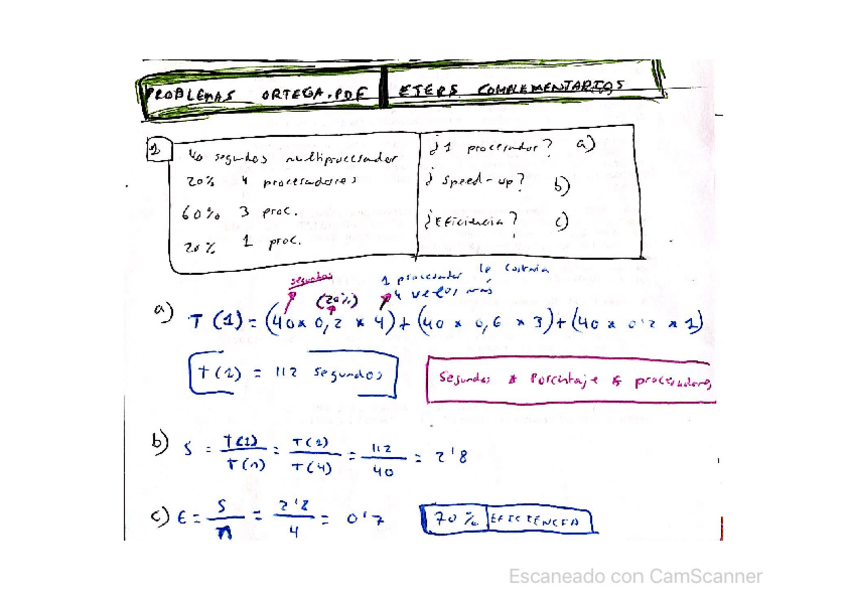 PROBLEMAS ORTEGA.PDF EJERS COMPLEMENTARIOS
1
40 segundos multiprocesador
20% 4 procesadores
60% 3 proc.
20% 1 proc.
¿1 procesador? a)
¿Speed-up? b)
¿Eficiencia? c)
segundos
(20%)
1 procesador le costaría
4 veces más
a) T(1) = (40 x 0,2 x 4) + (40 x 0,6 x 3) + (40 x 0'2 x 1)
T(1) = 112 segundos
Segundos * Porcentaje * procesadores
b) S = T(1)/T(n) = T(1)/T(4) = 112/40 = 2'8
c) E = S/n = 2'8/4 = 0'7
70% EFICIENCIA
Escaneado con CamScanner